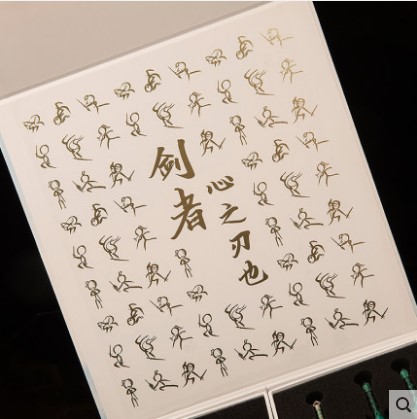 剑者
心之刃也